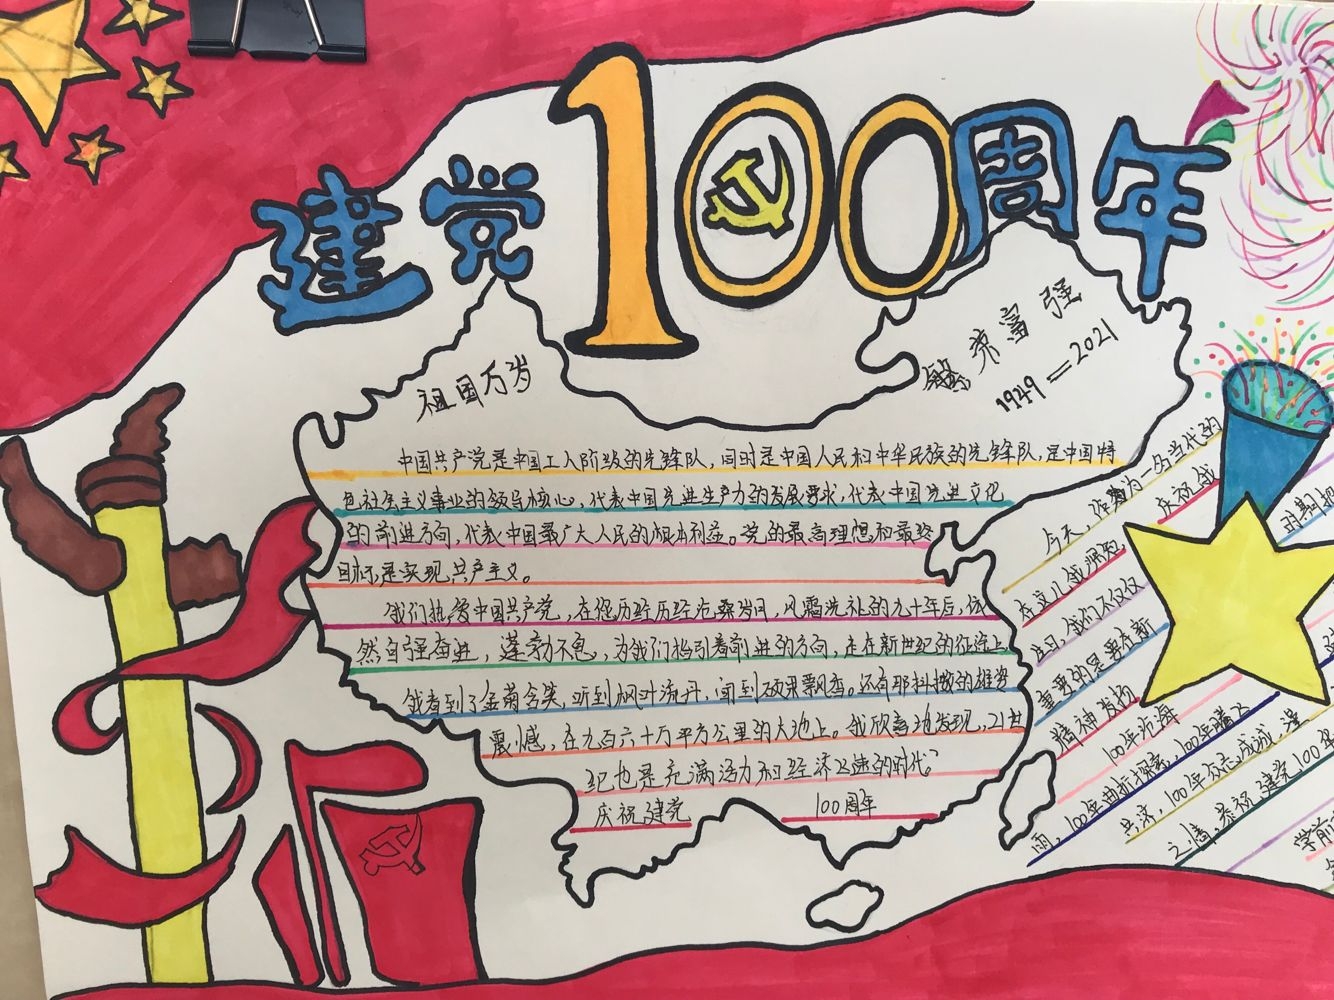 建党100周年
祖国万岁
繁荣富强
1949—2021
中国共产党是中国工人阶级的先锋队，同时是中国人民和中华民族的先锋队，是中国特
色社会主义事业的领导核心，代表中国先进生产力的发展要求，代表中国先进文化
的前进方向，代表中国最广大人民的根本利益。党的最高理想和最终
目标是实现共产主义。
我们热爱中国共产党，在您历经历经沧桑岁月，风霜洗礼的九十年后，依
然自强奋进，蓬勃不息，为我们指引着前进的方向，走在新世纪的征途上
我看到了金菊含笑，听到枫叶流丹，闻到硕果飘香。还有那抖擞的雄姿
震憾，在九百六十万平方公里的大地上。我欣喜地发现，21世
纪也是充满活力和经济飞速的时代？
庆祝建党 100周年
今天，作为一名当代的
庆祝我
在这儿我
的期把
我们不仅仅
重要的是要在新
精神发扬
100年沧海
雨，100年曲折探索，100年
共济，100年众志成城，
之情，恭祝建党100年
学前